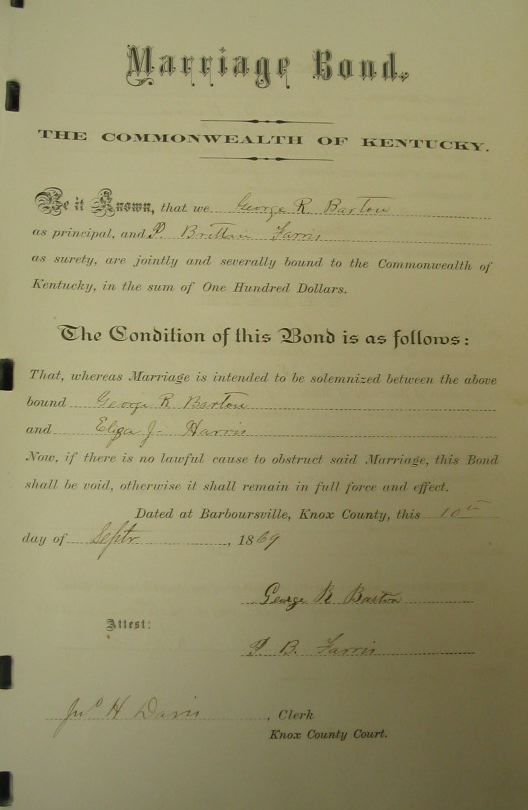 Marriage Bond.
THE COMMONWEALTH OF KENTUCKY.
Be it Known, that we George R. Barton
as principal, and P. Brittain Farris
as surety, are jointly and severally bound to the Commonwealth of
Kentucky, in the sum of One Hundred Dollars.
The Condition of this Bond is as follows:
That, whereas Marriage is intended to be solemnized between the above
bound George R Barton
and Eliza J- Harris
Now, if there is no lawful cause to obstruct said Marriage, this Bond
shall be void, otherwise it shall remain in full force and effect.
Dated at Barboursville, Knox County, this 10th
day of Septr , 1869
George R Barton
Attest:
P. B. Farris
Jno H Davis , Clerk
Knox County Court.